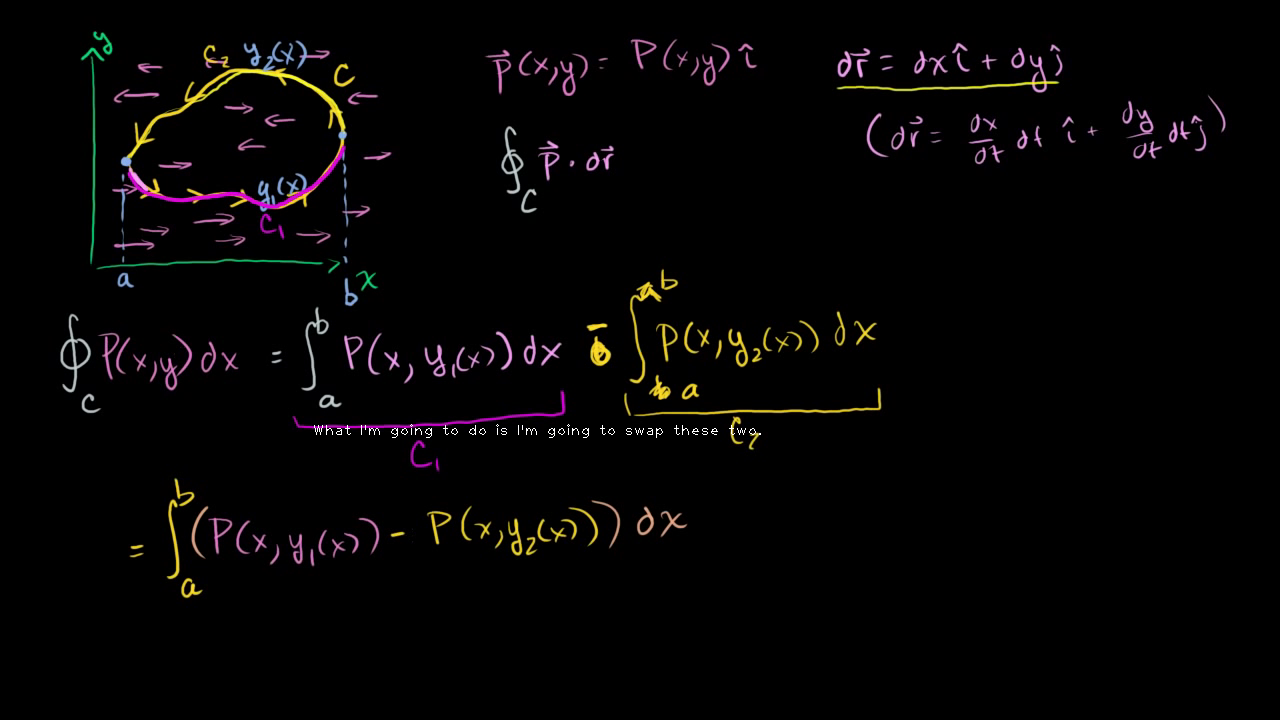 y
C₂ y₂(x)
C
y₁(x)
C₁
a b x
P⃗(x,y) = P(x,y) î
dr⃗ = dx î + dy ĵ
(dr⃗ = dx/dt dt î + dy/dt dt ĵ)
∮_C P⃗ · dr⃗
∮_C P(x,y) dx = ∫_a^b P(x, y₁(x)) dx - ∫_a^b P(x, y₂(x)) dx
C₁ C₂
What I'm going to do is I'm going to swap these two.
= ∫_a^b (P(x, y₁(x)) - P(x, y₂(x))) dx